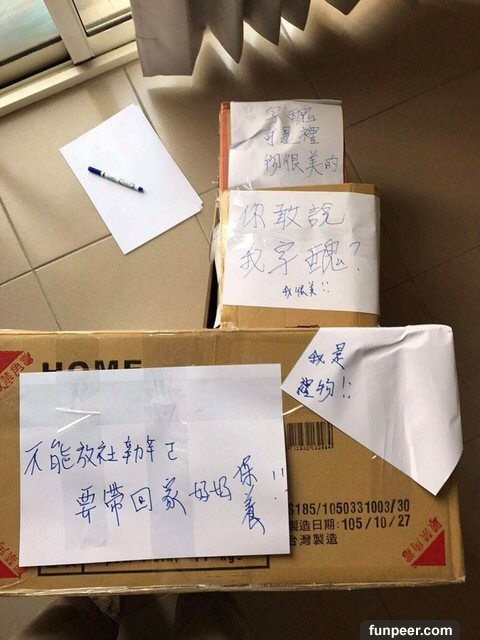 字醜
可是禮
物很美的
你敢說
我字醜?
我很美!!
我是
禮物!!
HOME
不能放社辦
要帶回家好好保養!!
S185/1050331003/30
製造日期:105/10/27
台灣製造
funpeer.com